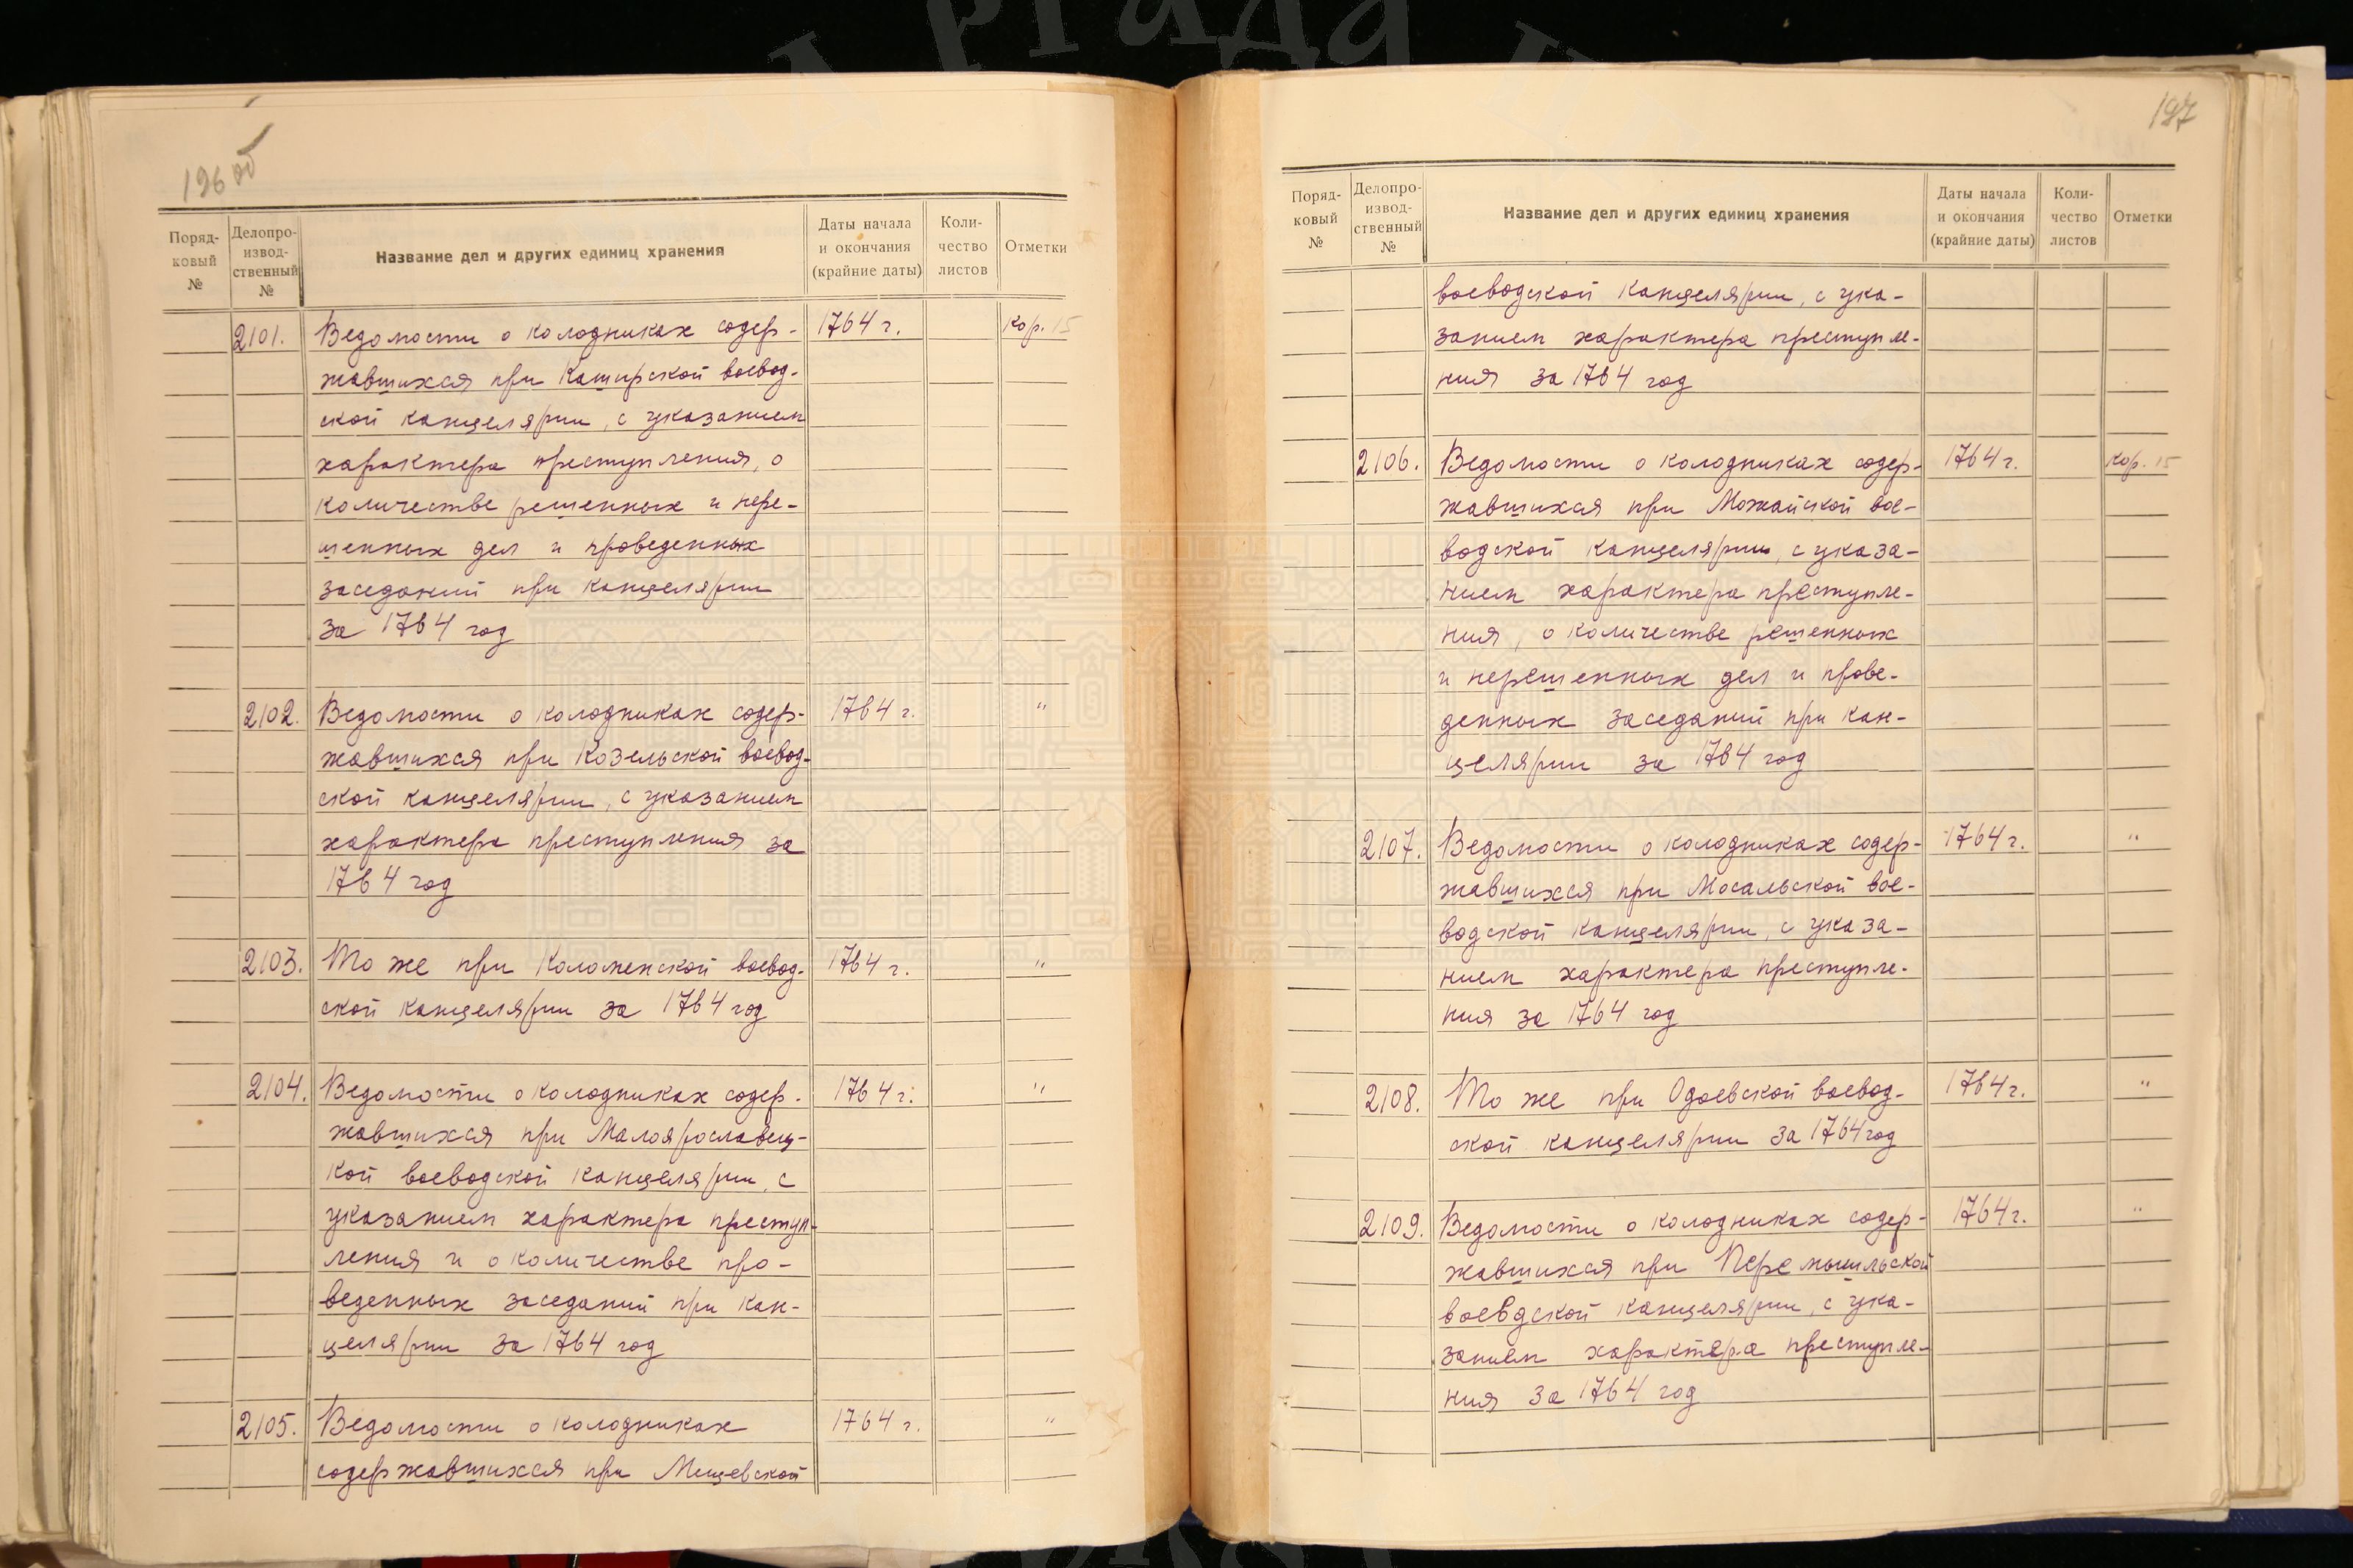 196 об
Поряд-
ковый
№
Делопро-
извод-
ственный
№
Название дел и других единиц хранения
Даты начала
и окончания
(крайние даты)
Коли-
чество
листов
Отметки
2101. Ведомости о колодниках содер- 1764 г. Кор. 15
жавшихся при Каширской воевод-
ской канцелярии, с указанием
характера преступления, о
количестве решенных и нере-
шенных дел и проведенных
заседаний при канцелярии
за 1764 год
2102. Ведомости о колодниках содер- 1764 г. "
жавшихся при Козельской воевод-
ской канцелярии, с указанием
характера преступления за
1764 год
2103. То же при Коломенской воевод- 1764 г. "
ской канцелярии за 1764 год
2104. Ведомости о колодниках содер- 1764 г. "
жавшихся при Малоярославец-
кой воеводской канцелярии, с
указанием характера преступ-
ления и о количестве про-
веденных заседаний при кан-
целярии за 1764 год
2105. Ведомости о колодниках 1764 г. "
содержавшихся при Мещевской
197
Поряд-
ковый
№
Делопро-
извод-
ственный
№
Название дел и других единиц хранения
Даты начала
и окончания
(крайние даты)
Коли-
чество
листов
Отметки
воеводской канцелярии, с ука-
занием характера преступле-
ния за 1764 год
2106. Ведомости о колодниках содер- 1764 г. Кор. 15
жавшихся при Можайской вое-
водской канцелярии, с указа-
нием характера преступле-
ния, о количестве решенных
и нерешенных дел и прове-
денных заседаний при кан-
целярии за 1764 год
2107. Ведомости о колодниках содер- 1764 г. "
жавшихся при Мосальской вое-
водской канцелярии, с указа-
нием характера преступле-
ния за 1764 год
2108. То же при Одоевской воевод- 1764 г. "
ской канцелярии за 1764 год
2109. Ведомости о колодниках содер- 1764 г. "
жавшихся при Перемышльской
воевдской канцелярии, с ука-
занием характера преступле-
ния за 1764 год